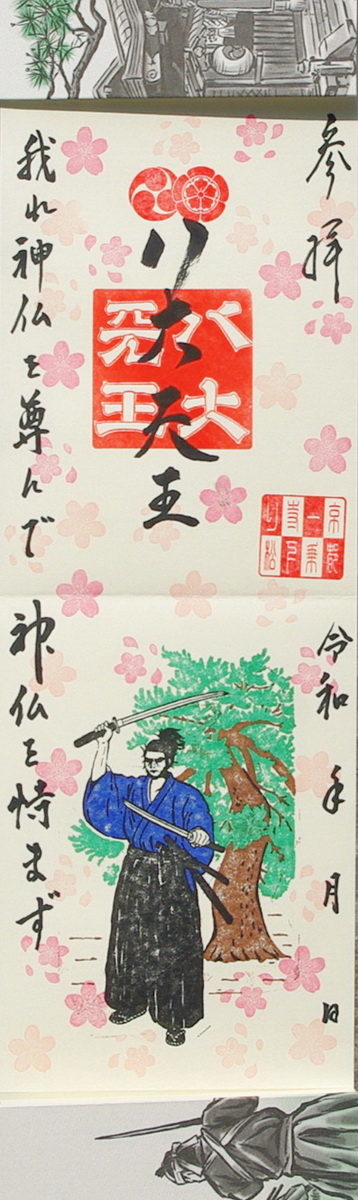 参拝
八大天王
八大天王
京都一乗寺下り松
我れ神仏を尊んで
令和 年 月 日
神仏を恃まず